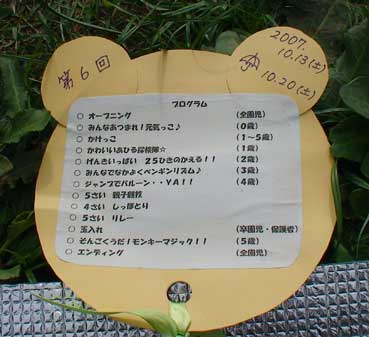 第6回
2007.
10.13(土)
10.20(土)
プログラム
○ オープニング (全園児)
○ みんなあつまれ！元気っこ♪ (0歳)
○ かけっこ (1～5歳)
○ かわいいあひる探検隊☆ (1歳)
○ げんきいっぱい 25ひきのかえる！！ (2歳)
○ みんなでなかよくペンギンリズム♪ (3歳)
○ ジャンプでバルーン・・YA！！ (4歳)
○ 5さい 親子競技
○ 4さい しっぽとり
○ 5さい リレー
○ 玉入れ (卒園児・保護者)
○ そんごくうだ！モンキーマジック！！ (5歳)
○ エンディング (全園児)